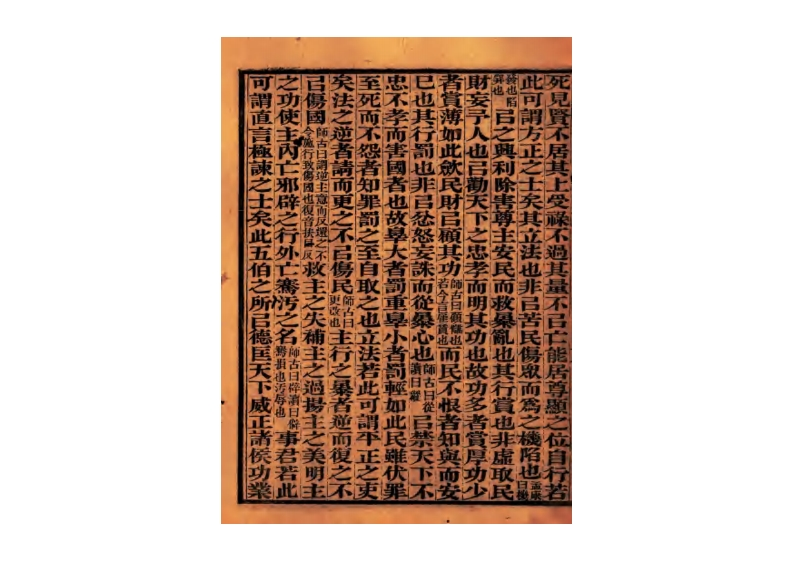 死見賢不居其上受祿不過其量不㠯亡能居尊顯之位自行若
此可謂方正之士矣其立法也非㠯苦民傷眾而為之機陷也孟康曰機
發也陷穽也㠯之興利除害尊主安民而救暴亂也其行賞也非虛取民
財妄予人也㠯勸天下之忠孝而明其功也故功多者賞厚功少
者賞薄如此斂民財㠯顧其功師古曰顧讎也若今言雇賃也而民不恨者知與而安
己也其行罰也非㠯忿怒妄誅而從暴心也師古曰從讀曰縱㠯禁天下不
忠不孝而害國者也故辠大者罰重辠小者罰輕如此民雖伏罪
至死而不怨者知罪罰之至自取之也立法若此可謂平正之吏
矣法之逆者請而更之不㠯傷民師古曰更改也主行之暴者逆而復之不
㠯傷國師古曰謂逆主意而反還之不令施行致傷國也復音扶目反救主之失補主之過揚主之美明主
之功使主內亡邪辟之行外亡騫汚之名師古曰辟讀曰僻騫損也汚辱也事君若此
可謂直言極諫之士矣此五伯之所㠯德匡天下威正諸侯功業